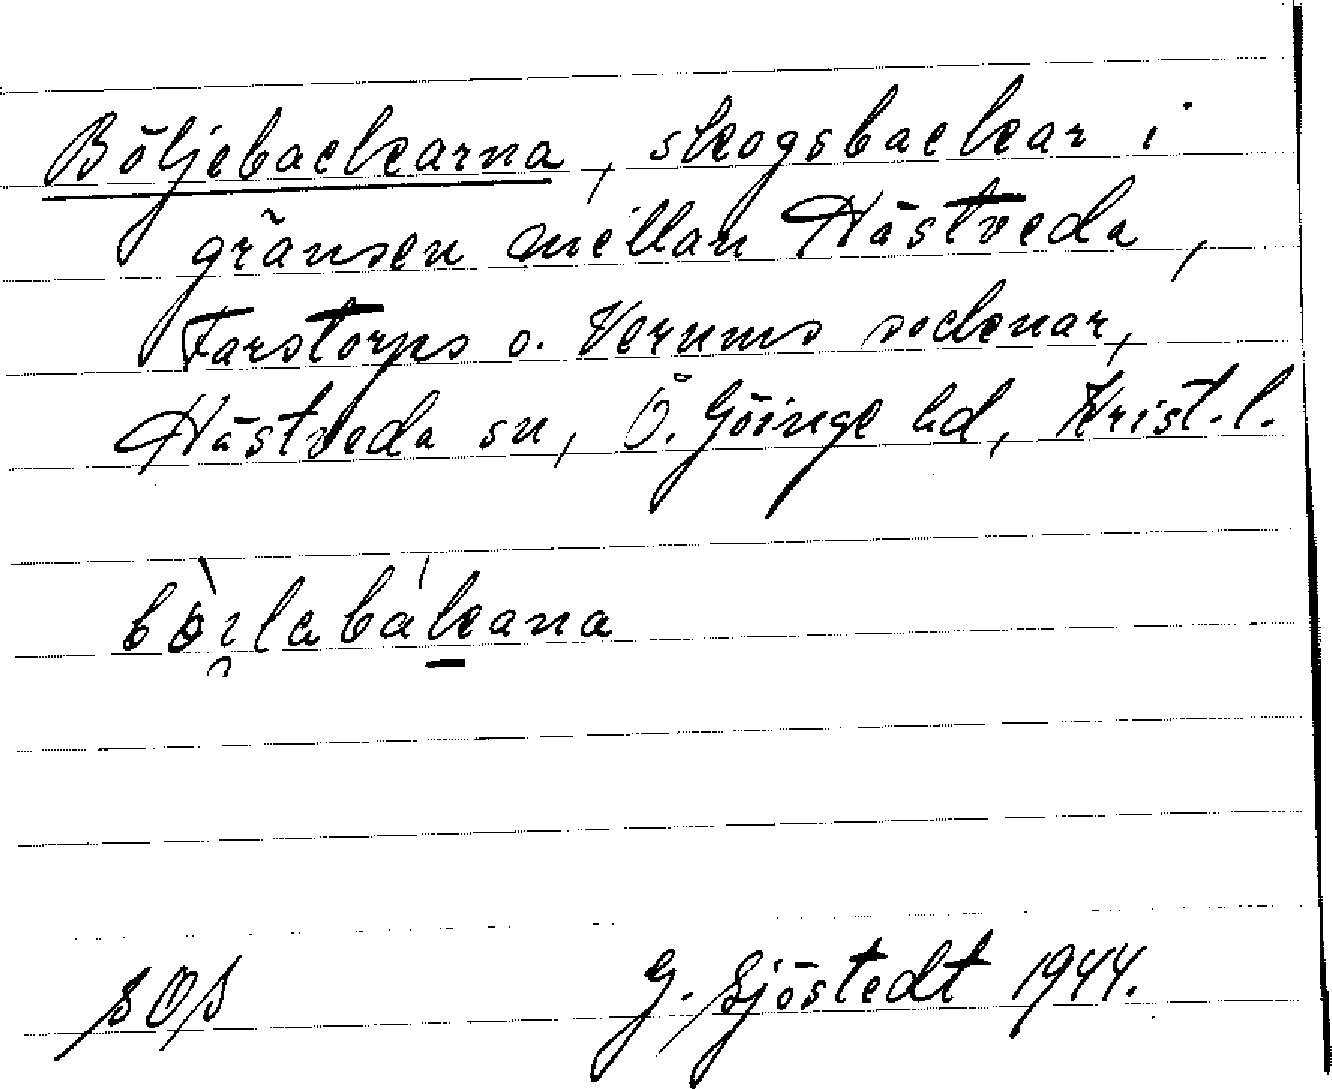 Böljebackarna, skogsbackar i
gränsen mellan Hästveda,
Farstorps o. Verums socknar,
Hästveda sn, Ö. Göinge hd, Krist. l.
G. Sjöstedt 1944.